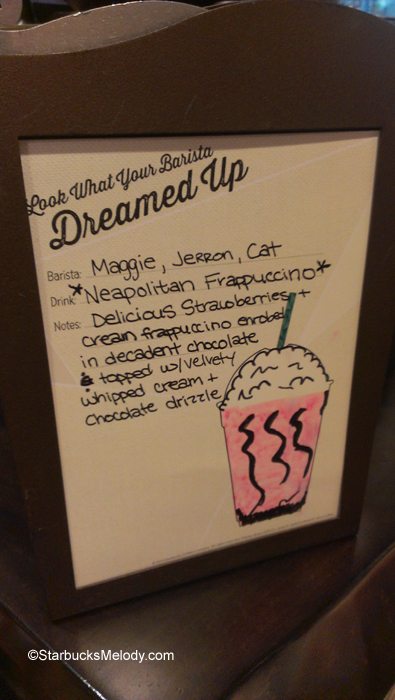 Look What Your Barista
Dreamed Up
Barista: Maggie, Jerron, Cat
Drink: *Neapolitan Frappuccino*
Notes: Delicious Strawberries +
cream frappuccino enrobed
in decadent chocolate
& topped w/velvety
whipped cream +
chocolate drizzle
©StarbucksMelody.com